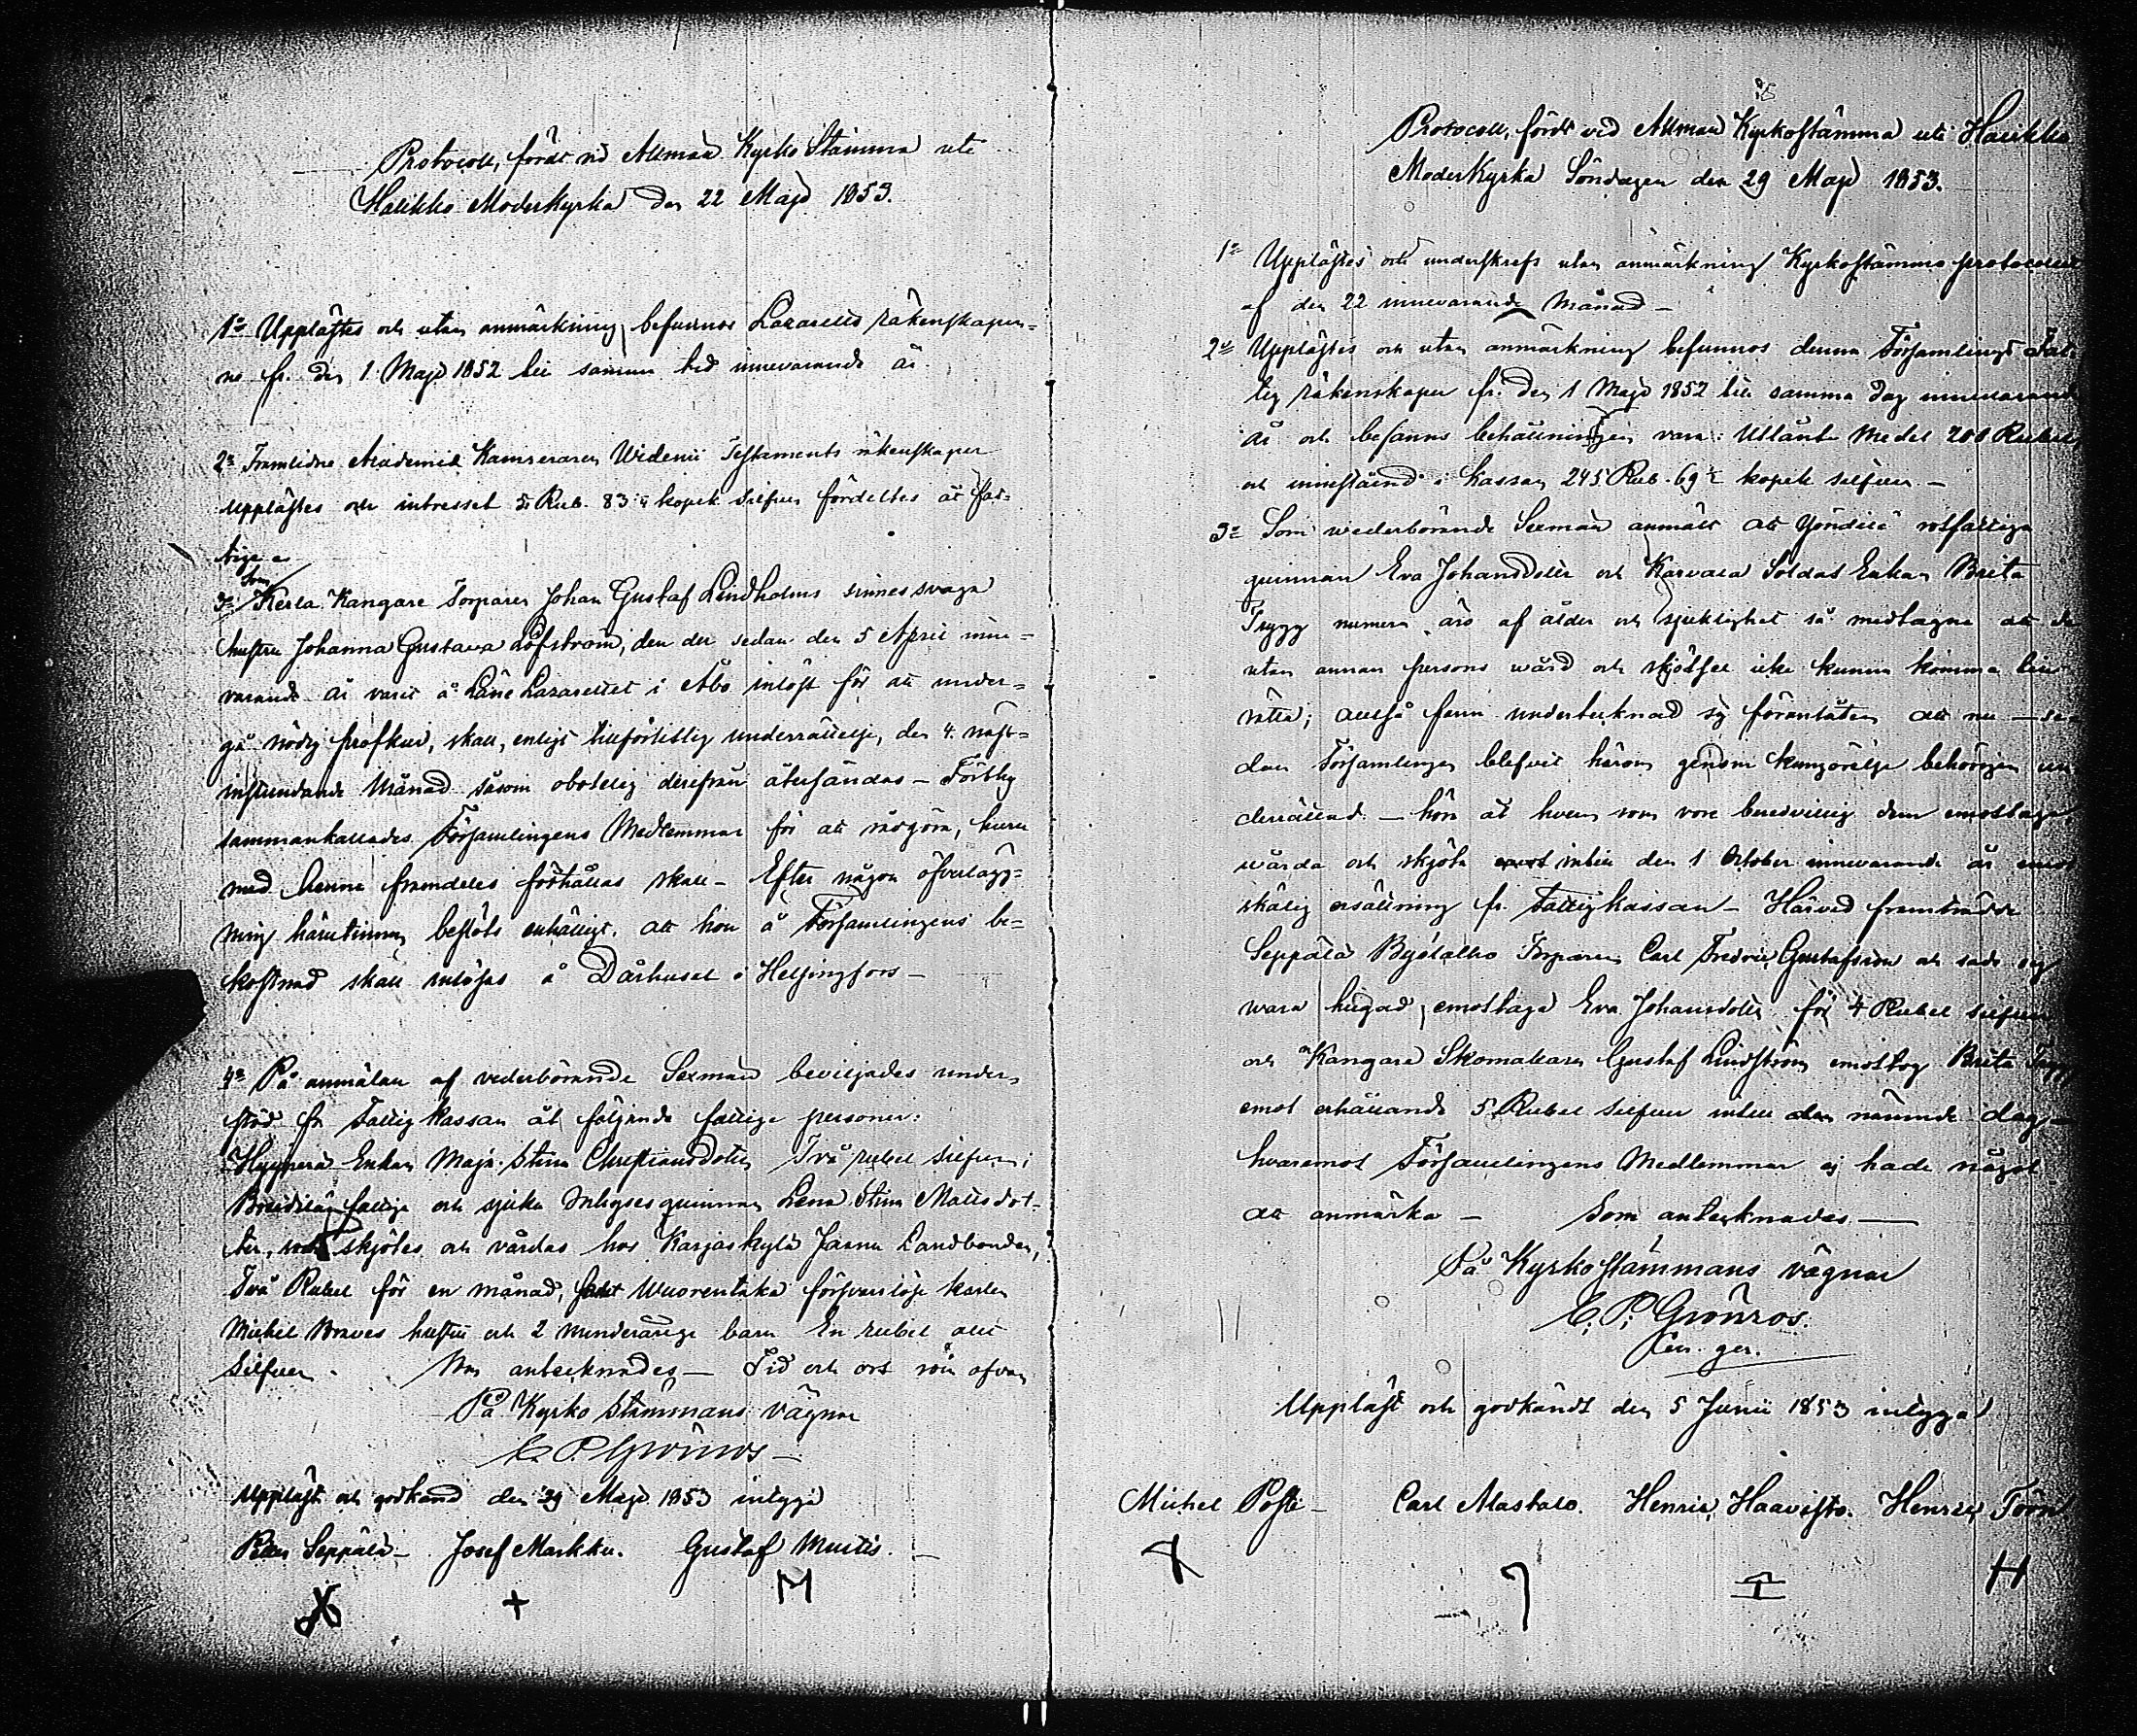 Protocoll, fördt vid Allmän Kyrko Stämma uti
Halikko Moderkyrka den 22 Maji 1853.
1o Upplästes och utan anmärkning befunnos Lazaretts räkenskaper-
ne fr. den 1 Maji 1852 till samma tid innevarande år.
2o Framlidne Academie Kamreraren Widenii Testaments räkenskaper
upplästes och intresset 5 Rub. 83 kopek silfver fördeltes åt fat-
tige
3o Som Kerla Kangare Torparen Johan Gustaf Lindholms sinnessvaga
hustru Johanna Gustava Löfström, den der sedan den 5 April inne-
varande år varit å Läns Lazarettet i Åbo inlöst för att under-
gå nödig profkur, skall, enligt tillförlitlig underrättelse, den 4 näst-
instundande Månad såsom obotelig derifrån återsändas – Förthy
sammankallades Församlingens Medlemmar för att rådgöra, huru
med henne framdeles förhållas skall – Efter någon öfverlägg-
ning härutinnan beslöts enhälligt, att hon å Församlingens be-
kostnad skall inlösas å Dårhuset i Helsingfors –
4o På anmälan af vederbörande Sexmän beviljades under-
stöd fr. Fattig kassan åt följande fattige personer:
Enkan Maja Stina Christiansdotter Två rubel silfver;
fattiga och sjuka Inhyses quinnan Lena Stina Mattsdot-
ter, som skjötes och vårdas hos Karjaskylä Jannu Landbonden,
Två Rubel för en månad, samt Wuorentaka försvarslöse karlen
Michel hustru och 2 minderårige barn En rubel allt
Silfver. Som antecknades – Tid och ort som ofvan
På Kyrko Stämmans vägnar
C. P. Grönros –
Uppläst och godkänd den 29 Maji 1853 intyga
Petter Seppälä – Josef Markku. Gustaf
+ M
Protocoll, fördt vid Allmän Kyrkostämma uti Halikko
Moderkyrka Söndagen den 29 Maji 1853.
1o Upplästes och underskrefs utan anmärkning Kyrkostämmo protocollet
af den 22 innevarande Månad –
2o Upplästes och utan anmärkning befunnos denna Församlings Fat-
tig räkenskaper fr. den 1 Maji 1852 till samma dag innevarande
år och befanns behållningen vara: Utlånte Medel 200 Rubel
och innestånd i Kassan 245 Rub. 69 kopek silfver –
3o Som wederbörande Sexmän anmält att rotfattiga
quinnan Eva Johansdotter och Karvala Soldat Enkan Brita
Trygg numera äro af ålder och sjuklighet så medtagne att de
utan annan persons wård och skjötsel icke kunna komma till
rätta; alltså fann undertecknad sig föranlåten att nu – se-
dan Församlingen blefvit härom genom kungörelse behörigen un-
derrättad – höra åt hvem som vore beredvillig dem emottaga,
wårda och skjöta intill den 1 October innevarande år emot
skälig ersättning fr. Fattigkassan – Härvid framträdde
Seppälä Torparen Carl Fredric Gustafsson och sade sig
wara hugad emottaga Eva Johansdotter för 4 Rubel silfver
och Kangare Skomakaren Gustaf Lindström emottog Brita Trygg
emot erhållande 5 Rubel silfver intill nämnde dag –
hvaremot Församlingens Medlemmar ej hade något
att anmärka – Som antecknades –
På Kyrkostämmans vägnar
C. P. Grönros.
Uppläst och godkändt den 5 Junii 1853 intyga
Michel Posti – Carl Mastalo. Henric Haavisto. Henric Törn
H